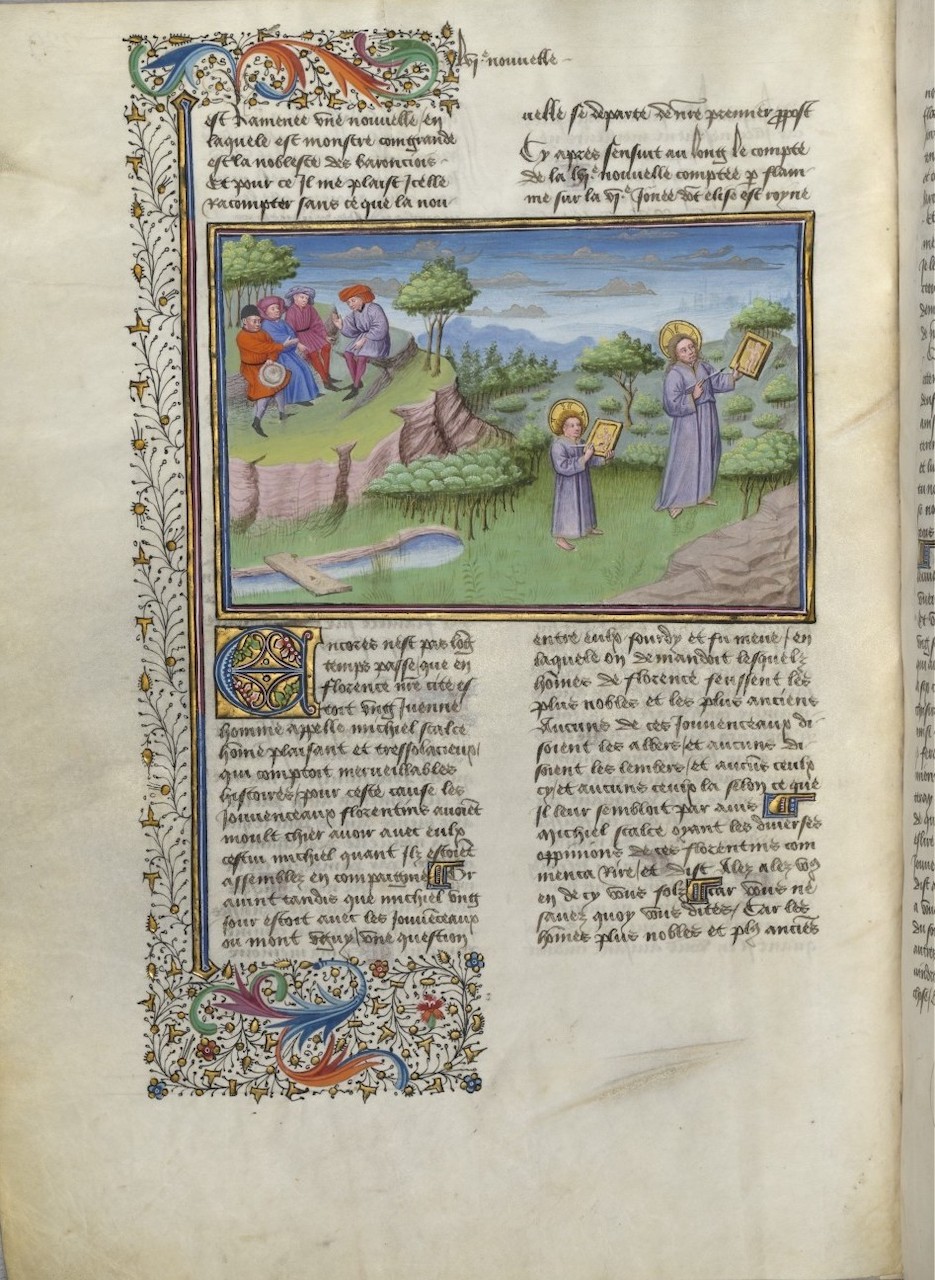 lvi.e nouuelle
est Ramenee vne nouuelle / en
laquele est monstre com grande
est la noblesse des baronciois
Et pour ce Il me plaist Icelle
Racompter sans ce que la nou
uelle se departe de nre premier ppost
Cy apres sensuit au long le compte
de la lvi.e nouuelle comptee p flam
me sur la vi.e Jonee dot elise est royne
Encores nest pas log
temps passe que en
florence nre cite es
toit vng Juenne
homme appelle michiel scalce
home plaisant et tressolacieux /
qui comptoit merueillables
histoires / pour ceste cause les
Jouuenceaux florentins auoiet
moult chier auoir auec eulx
cestui michiel quant Ilz estoiet
assemblez en compaignie Or
auint tandis que michiel vng
Jour estoit auec les Jouueceaux
ou mont vguy / vne question
entre eulx sourdy et fu meue / en
laquele on demandoit lesquelz
homes de florence feussent les
plus nobles et les plus anciens
Aucuns de ces Jouuenceaux di
soient les albers / et aucuns di
soient les lembers / et aucus ceulx
cy et aucuns ceulx la selon ce que
il leur sembloit par auis
Michiel scalce oyant les diuerses
oppinions de ces florentins com
menca Rire / et dist Alez alez vo9
en de cy vous folz Car vous ne
sauez quoy vous dites / Car les
homes plus nobles et pl9 anciens